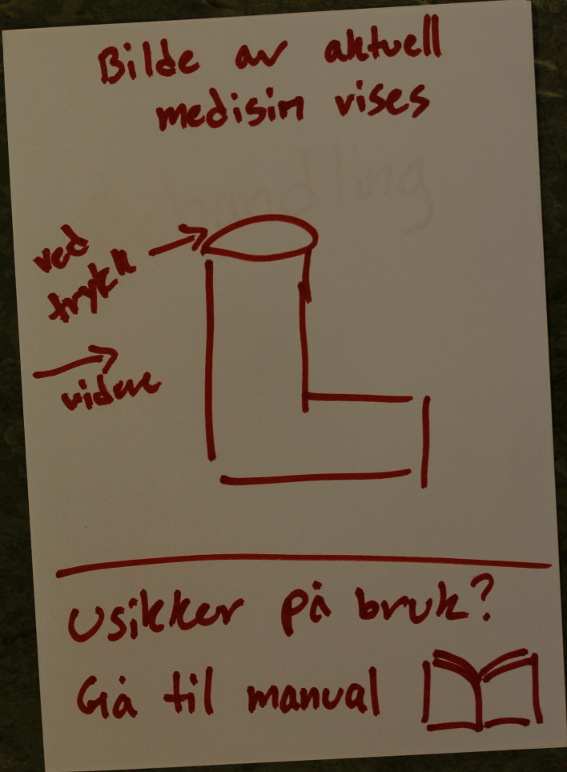 Bilde av aktuell
medisin vises
ved
trykk
videre
Usikker på bruk?
Gå til manual